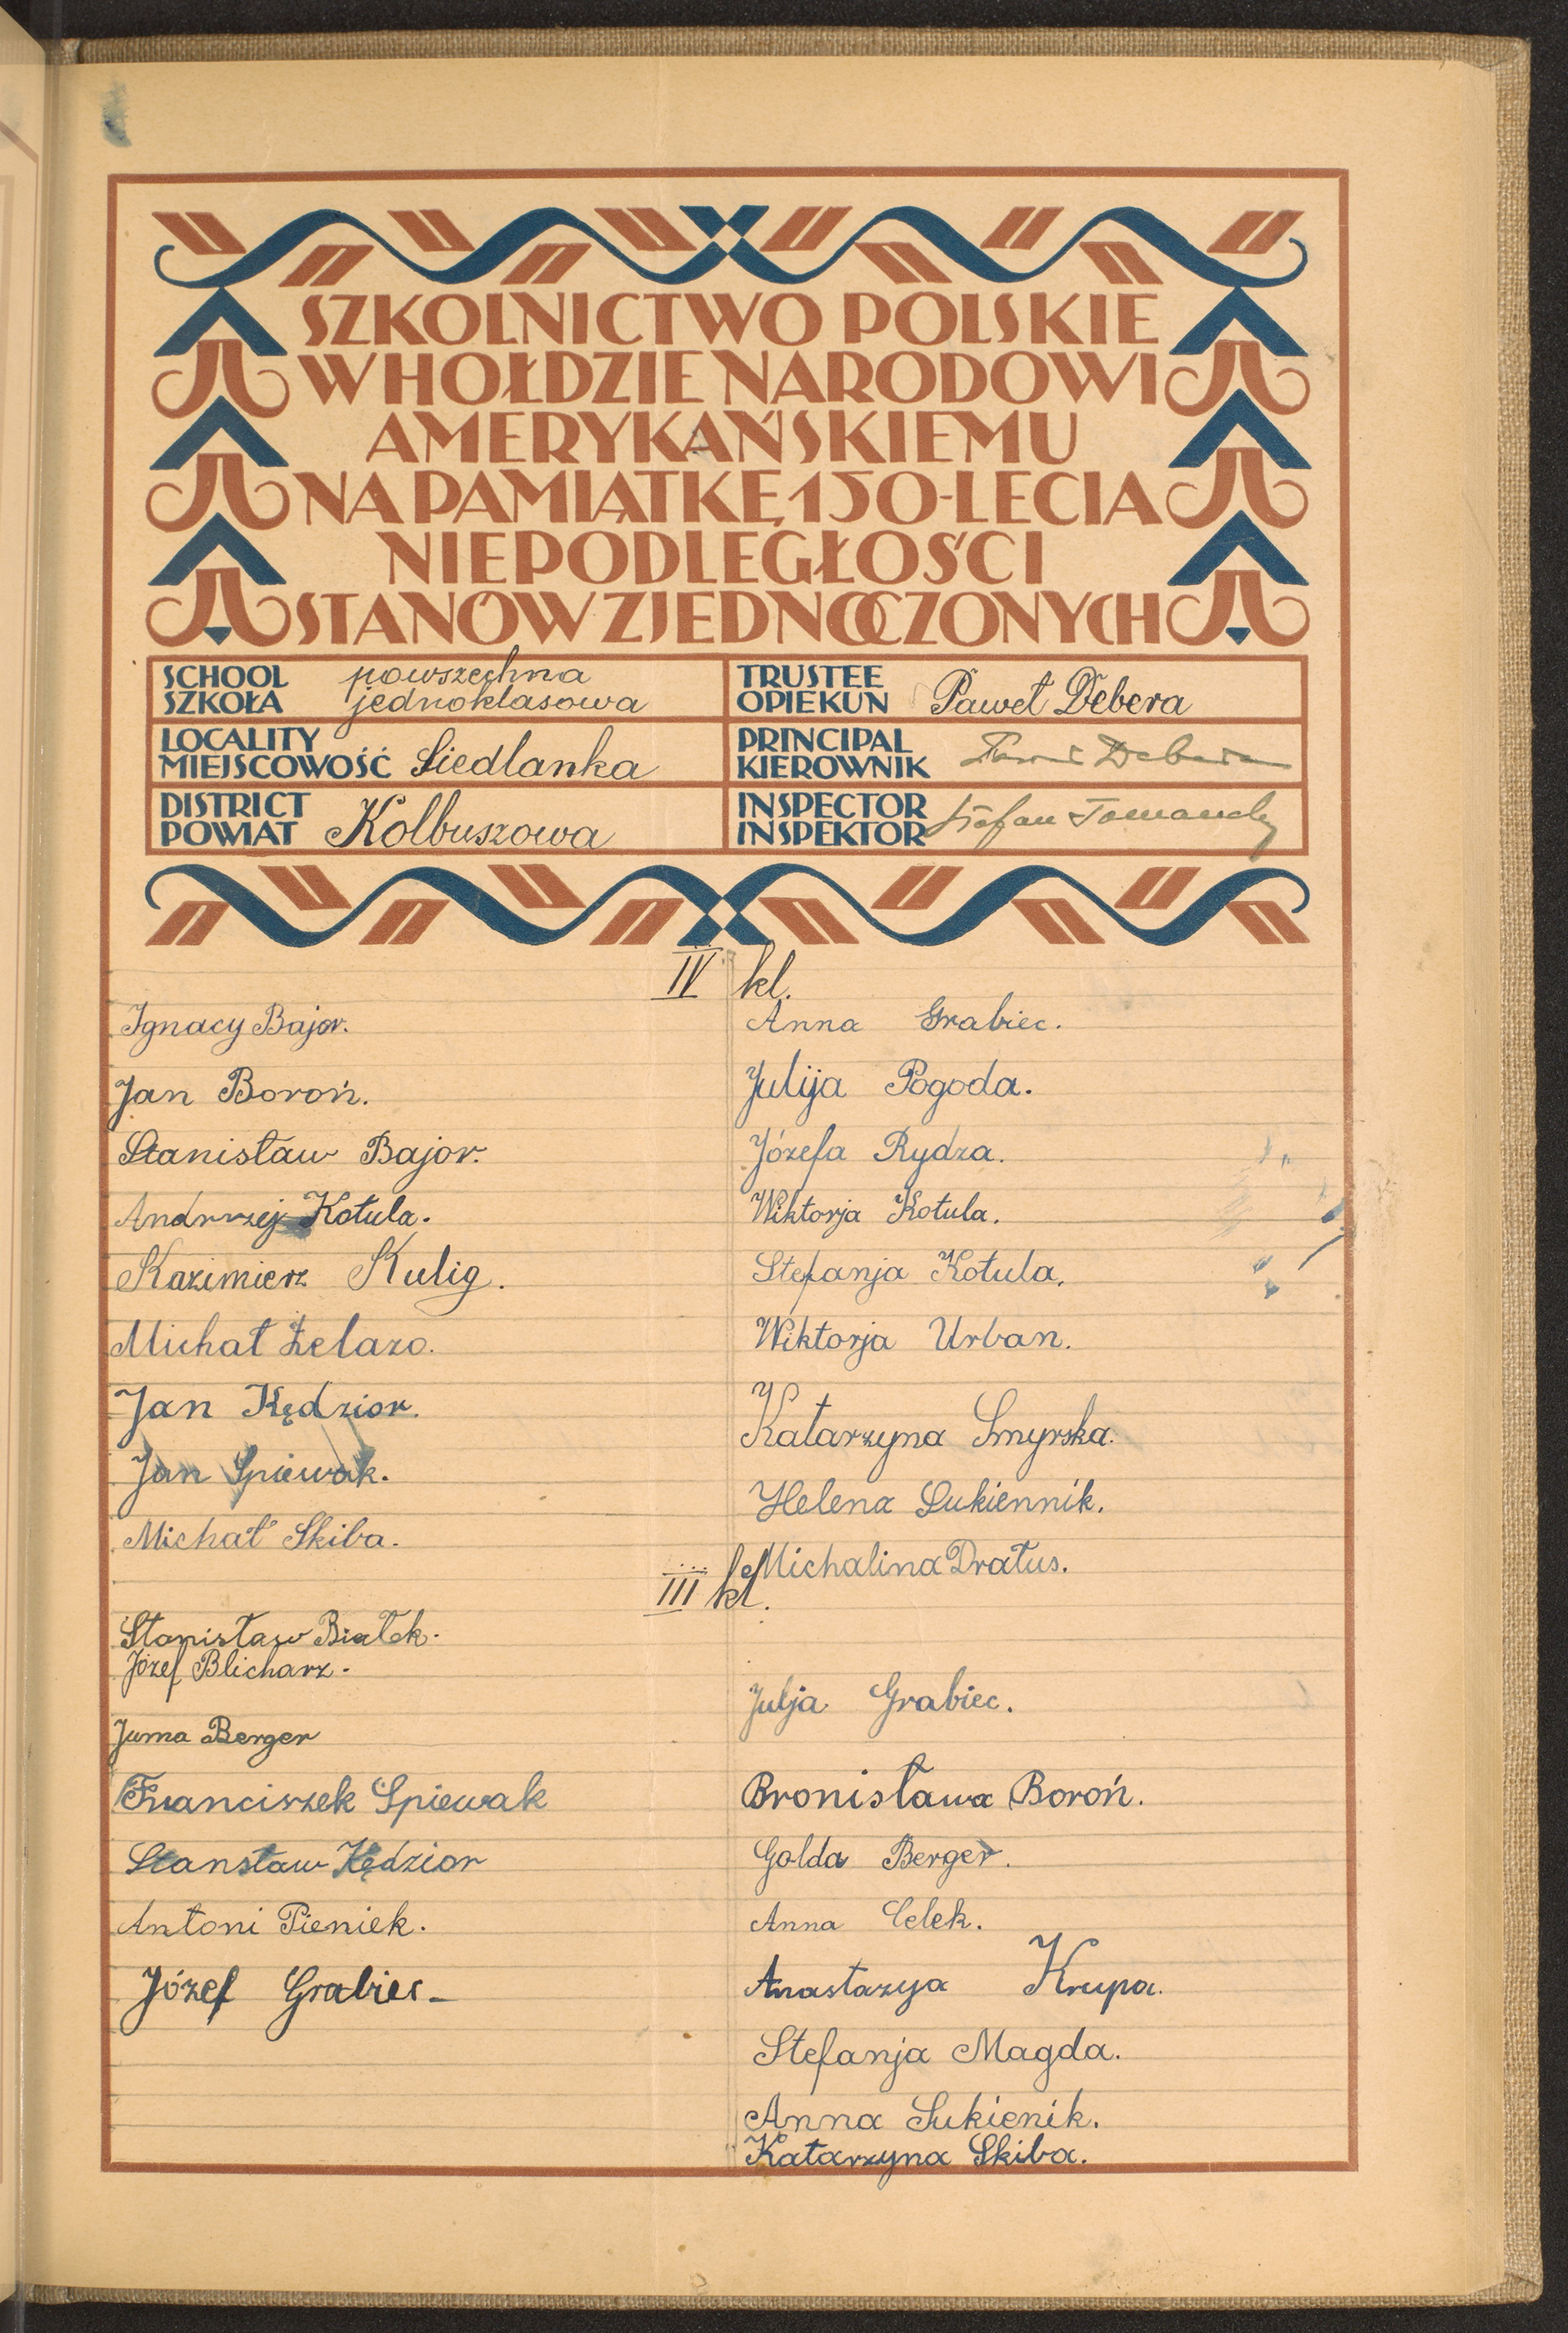 SZKOLNICTWO POLSKIE
W HOŁDZIE NARODOWI
AMERYKAŃSKIEMU
NA PAMIĄTKĘ 150-LECIA
NIEPODLEGŁOŚCI
STANÓW ZJEDNOCZONYCH
SCHOOL
SZKOŁA
powszechna
jednoklasowa
TRUSTEE
OPIEKUN
Paweł Debera
LOCALITY
MIEJSCOWOŚĆ
Siedlanka
PRINCIPAL
KIEROWNIK
Paweł Debera
DISTRICT
POWIAT
Kolbuszowa
INSPECTOR
INSPEKTOR
Stefan
IV kl.
Ignacy Bajor.
Jan Boroń.
Stanisław Bajor.
Andrzej Kotula.
Kazimierz Kulig.
Michał Żelazo.
Jan Kędzior.
Jan Spiewak.
Michał Skiba.
Anna Grabiec.
Julija Pogoda.
Józefa Rydza.
Wiktorja Kotula.
Stefanja Kotula.
Wiktorja Urban.
Katarzyna Smyrska.
Helena Sukiennik.
Michalina Dratus.
III kl.
Stanisław Białek.
Józef Blicharz.
Juma Berger
Franciszek Spiewak
Stansław Kędzior
Antoni Pieniek.
Józef Grabiec
Julja Grabiec.
Bronisława Boroń.
Golda Berger.
Anna Celek.
Anastazya Krupa.
Stefanja Magda.
Anna Sukienik.
Katarzyna Skiba.